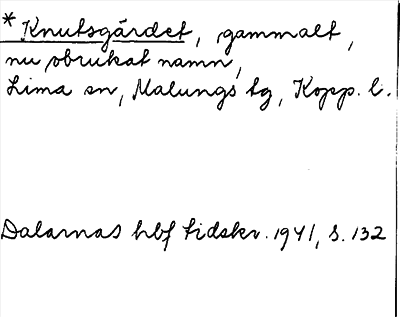 * Knutsgärdet, gammalt,
nu obrukat namn,
Lima sn, Malungs tg, Kopp. l.
Dalarnas hbf tidskr. 1941, s. 132